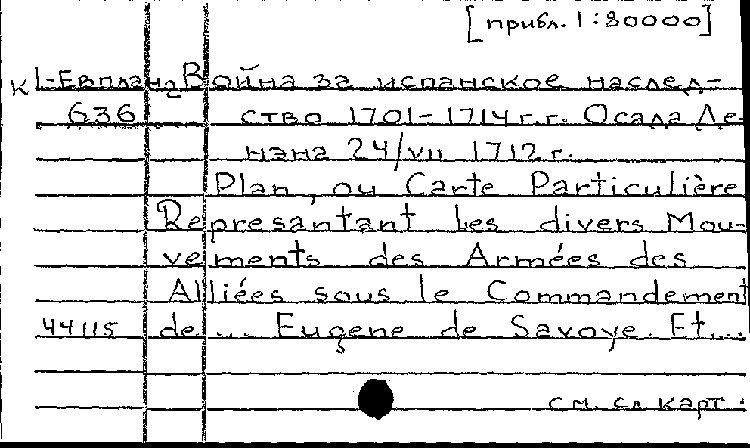 [прибл. 1:80000]
К 1-Евпланд Война за испанское наслед-
636 ство 1701-1714 г.г. Осада Де-
нэна 24/VII 1712 г.
Plan, ou Carte Particulière
Represantant les divers Mou-
vements des Armées des
Alliées sous le Commandement
44115 de... Eugene de Savoye. Et...
см. сл. карт.